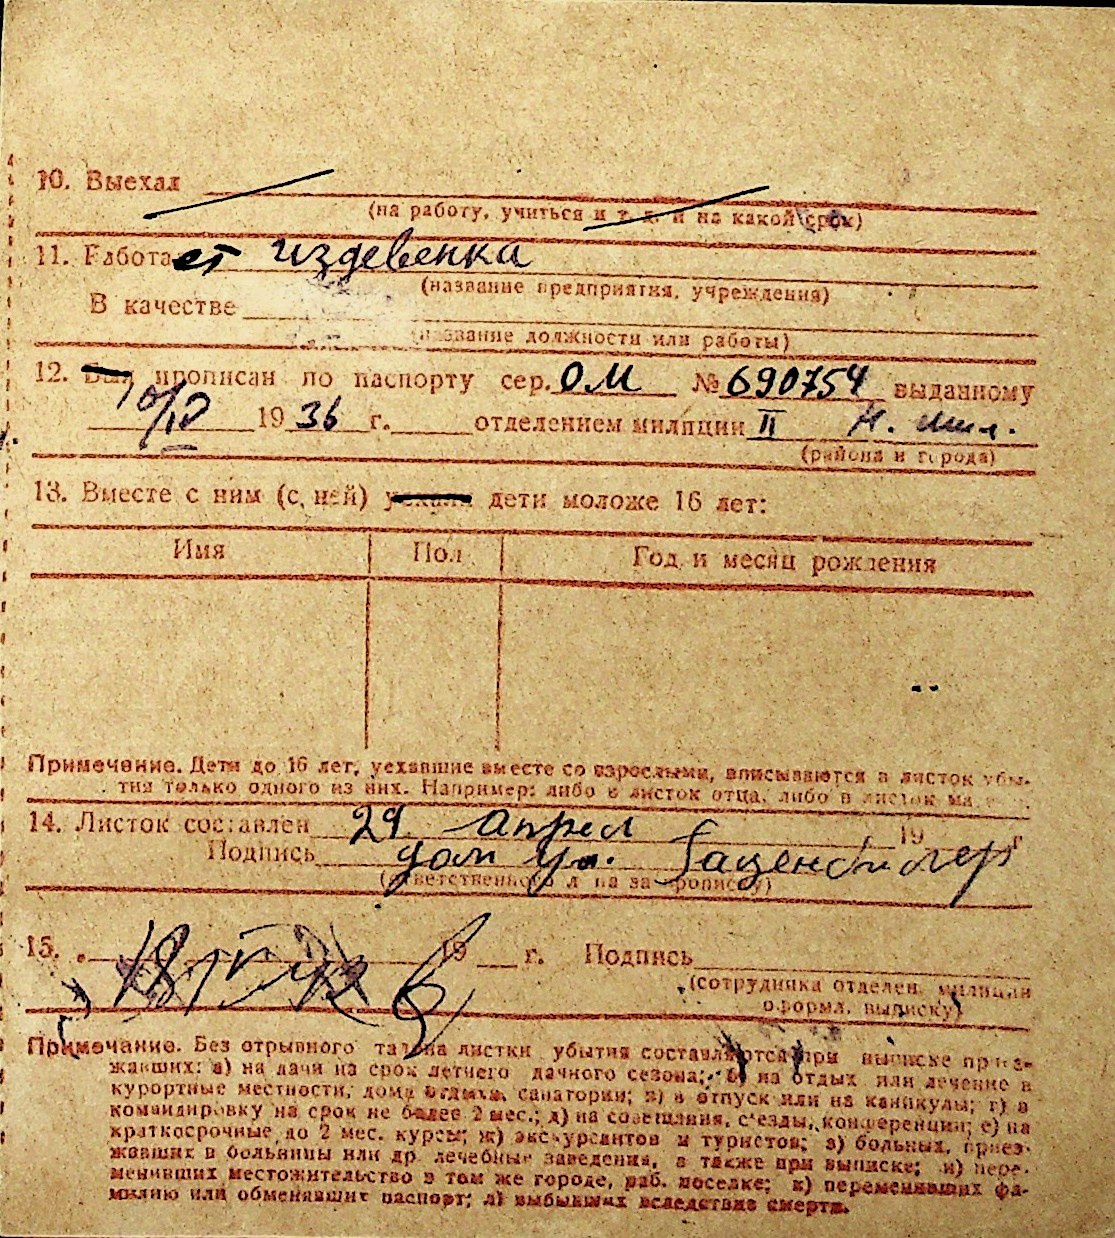 10. Выехал
(на работу, учиться и т. д. и на какой срок)
11. Работает издевенка
(название предприятия, учреждения)
В качестве
(название должности или работы)
12. Был прописан по паспорту сер. ОМ № 690754 выданному
10/IV 1936 г. отделением милиции II Н. мил.
(района и города)
13. Вместе с ним (с ней) уехали дети моложе 16 лет:
Имя Пол Год и месяц рождения
Примечание. Дети до 16 лет, уехавшие вместе со взрослыми, вписываются в листок убы-
тия только одного из них. Например: либо в листок отца, либо в листок
14. Листок составлен 29 апрел 19 г
Подпись дом уп.
(ответственного за прописку)
15. 19 г. Подпись
(сотрудника отделен. милиции
оформл. выписку)
Примечание. Без отрывного талона листки убытия составляются при выписке приез-
жавших: а) на дачи на срок летнего дачного сезона; б) на отдых или лечение в
курортные местности, дома отдыха, санатории; в) в отпуск или на каникулы; г) в
командировку на срок не более 2 мес.; д) на совещания, с'езды, конференции; е) на
краткосрочные до 2 мес. курсы; ж) экскурсантов и туристов; з) больных, приез-
жавших в больницы или др. лечебные заведения, а также при выписке; и) пере-
менивших местожительство в том же городе, раб. поселке; к) переменивших фа-
милию или обменявших паспорт; л) выбывших вследствие смерти.